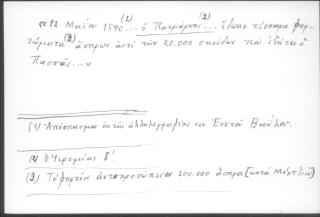 «12 Μαΐου 1590...(1) ὁ Πατριάρχης...(2) ἔδωκε τέσσαρα φορ-
τώματα(3) ἄσπρων ἀντὶ τῶν 20.000 σκούδων ποὺ ἐζήτει ὁ
Πασσᾶς...»
(1) Ἀπόσπασμα ἐκ τῆς ἀλληλογραφίας τοῦ Ἐνετοῦ Βαΐλου.
(2) Ὁ Ἱερεμίας Β΄.
(3) Τὸ φορτίον ἀντεπροσώπευε 100.000 ἄσπρα [κατὰ